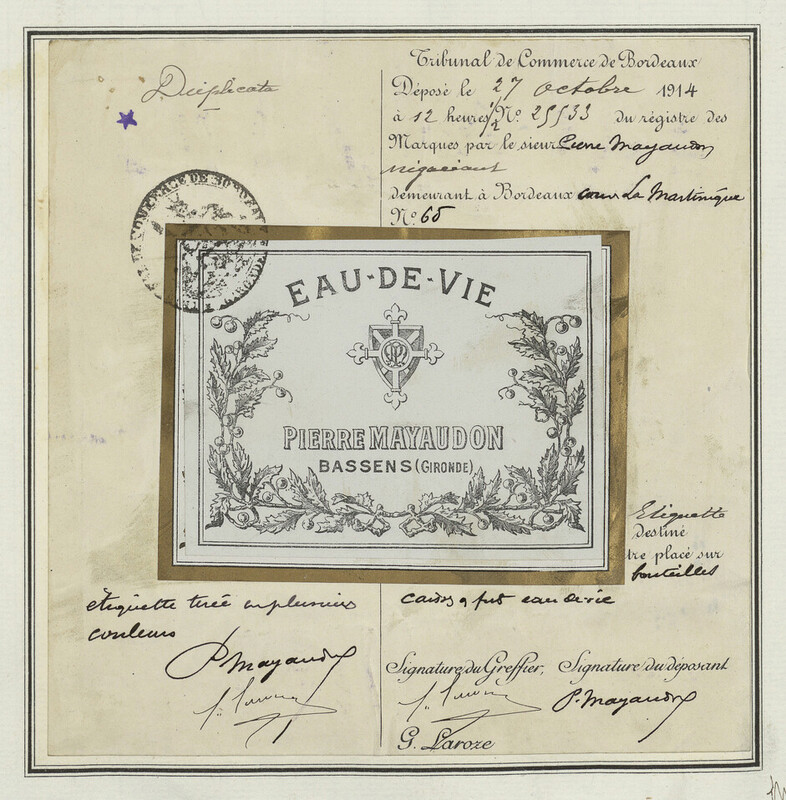 Duplicata
Tribunal de Commerce de Bordeaux
Déposé le 27 octobre 1914
à 12 heures 1/2 Nº 25533 du régistre des
Marques par le sieur Pierre Mayaudon
négociant
demeurant à Bordeaux cours La Martinique
Nº 65
DE COMMERCE DE BORDEAUX
EAU-DE-VIE
PIERRE MAYAUDON
BASSENS (GIRONDE)
Etiquette
destiné
tre placé sur
bouteilles
caisses & fut eau de vie
étiquette tirée en plusieurs
couleurs
P. Mayaudon
Signature du Greffier, Signature du déposant
P. Mayaudon
G. Laroze